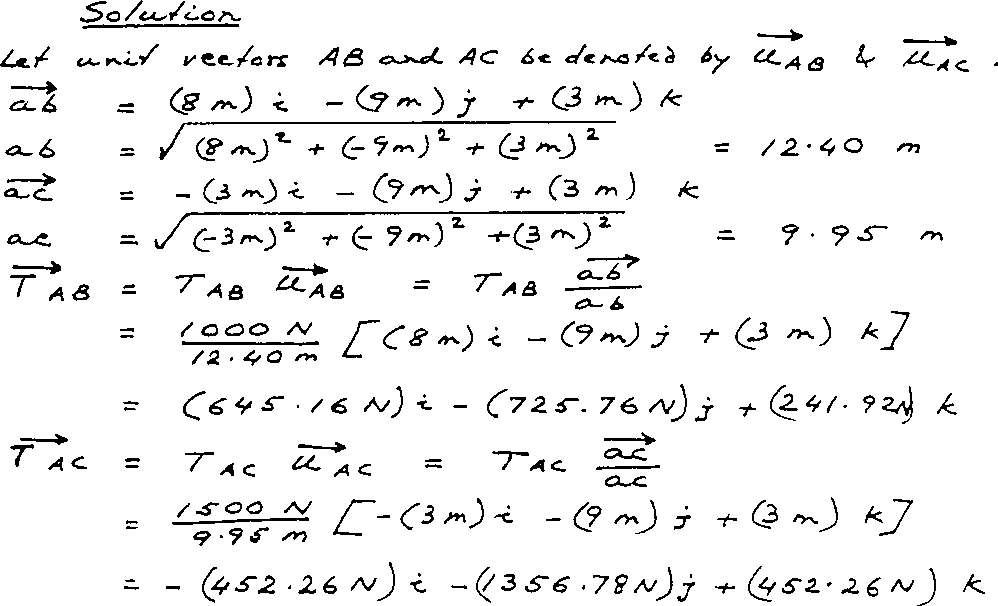 Solution
Let unit vectors AB and AC be denoted by u⃗AB & u⃗AC .
a⃗b⃗ = (8 m) i - (9 m) j + (3 m) k
ab = √((8 m)² + (-9m)² + (3 m)²) = 12.40 m
a⃗c⃗ = - (3 m) i - (9 m) j + (3 m) k
ac = √((-3m)² + (-9m)² + (3m)²) = 9.95 m
T⃗AB = TAB u⃗AB = TAB a⃗b⃗/ab
= 1000 N/12.40 m [(8 m) i - (9m) j + (3 m) k]
= (645.16 N) i - (725.76 N) j + (241.92N) k
T⃗AC = TAC u⃗AC = TAC a⃗c⃗/ac
= 1500 N/9.95 m [-(3 m) i - (9 m) j + (3 m) k]
= - (452.26 N) i - (1356.78N) j + (452.26 N) k